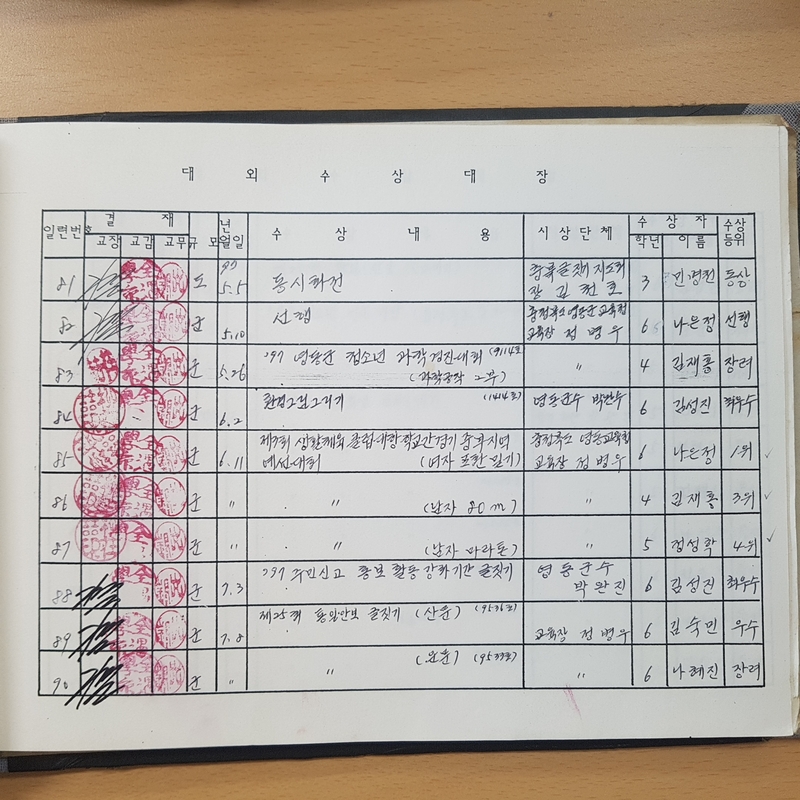 대 외 수 상 대 장
일련번호 결 재 교장 교감 교무 규모 년월일 수 상 내 용 시 상 단 체 수 상 자 학년 이름 수상등위
81 도 97 5.5 동시화전 충북글짓기지도회장 김현호 3 민경현 동상
82 군 5.10 선행 충청북도영동군교육청 교육장 정병우 6 나은정 선행
83 군 5.26 '97 영동군 청소년 과학경진대회 (9114호)
(과학공작 2부) 〃 4 김재홍 장려
84 군 6.2 환경그림그리기 (1414호) 영동군수 박완수 6 김성진 최우수
85 군 6.11 제7회 생활체육 클럽대항 학교간경기 중부지역 충청북도 영동교육청
예선대회 (여자 포환 던지기) 교육장 정병우 6 나은정 1위
86 군 〃 〃 (남자 80m) 〃 4 김재홍 3위
87 군 〃 〃 (남자 마라톤) 〃 5 정성학 4위
88 군 7.3 '97 주민신고 홍보 활동 강화기간 글짓기 영동군수 박완진 6 김성진 최우수
89 군 7.8 제25회 통일안보 글짓기 (산문) (9536호) 교육장 정병우 6 김숙민 우수
90 군 〃 〃 (운문) (9537호) 〃 6 나혜진 장려